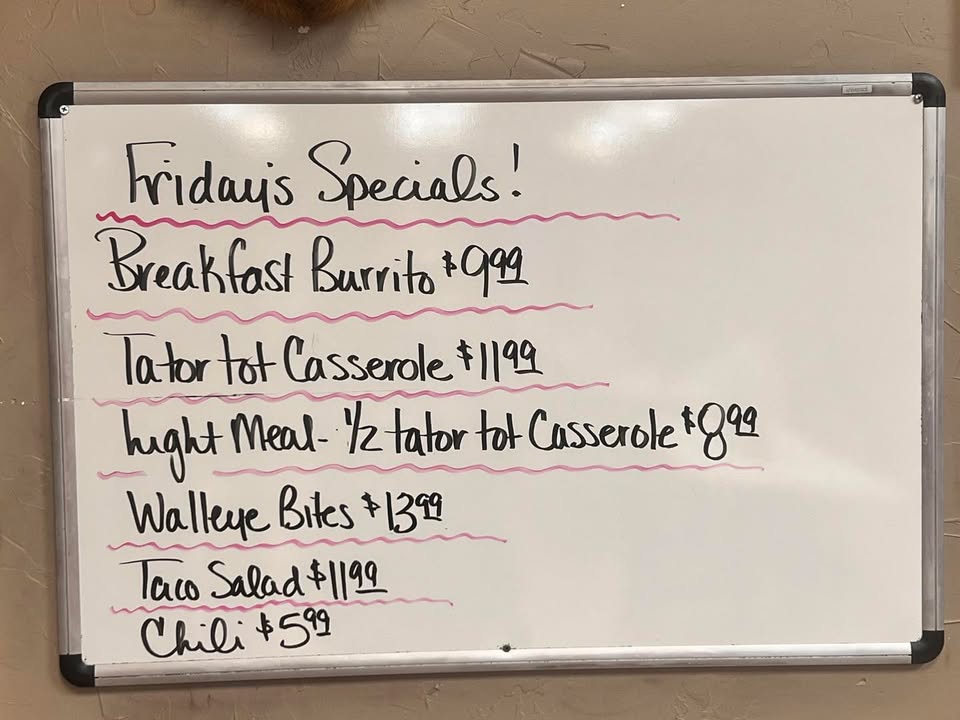 Friday's Specials!
Breakfast Burrito $9.99
Tator tot Casserole $11.99
Light Meal- 1/2 tator tot Casserole $8.99
Walleye Bites $13.99
Taco Salad $11.99
Chili $5.99